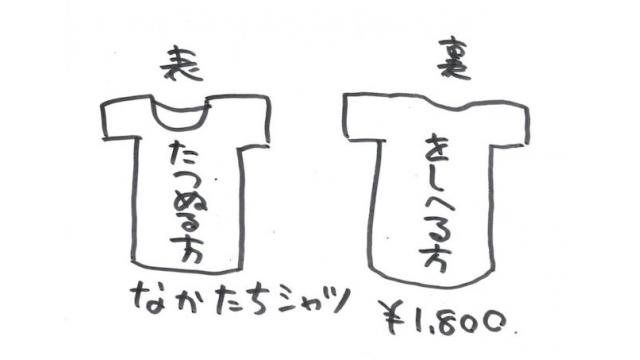 表
たつぬる方
裏
をしへる方
なかたちシャツ
¥1,800.